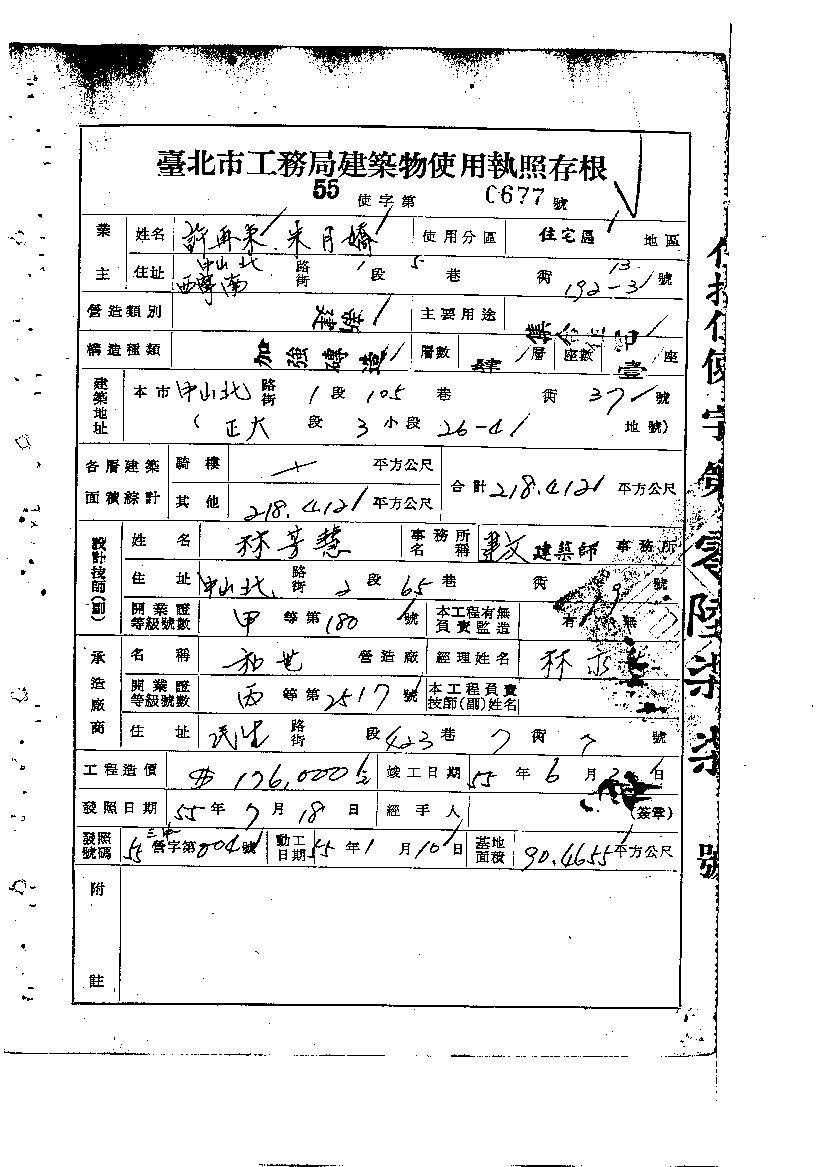 臺北市工務局建築物使用執照存根
55 使字第 0677 號
業主 姓名 許再來 朱月嬌 使用分區 住宅區 地區
住址 中山北 路街 1 段 5 巷 街 13 號
西寧南 192-3
營造類別 建築 主要用途 集合住
構造種類 加強磚造 層數 肆 層 座數 壹 座
建築地址 本市 中山北 路街 1 段 105 巷 街 37 號
( 正大 段 3 小段 26-4 地號)
各層建築面積綜計 騎樓 平方公尺 合計 218.412 平方公尺
其他 218.412 平方公尺
設計技師(副) 姓名 林芳慧 事務所名稱 建築師 事務所
住址 中山北 路街 2 段 65 巷 街 19 號
開業證等級號數 甲 等第 180 號 本工程有無負責監造 有 無
承造廠商 名稱 和世 營造廠 經理姓名 林
開業證等級號數 丙 等第 2517 號 本工程負責技師(副)姓名
住址 民生 路街 段 423 巷 7 街 7 號
工程造價 $ 176,000 竣工日期 55 年 6 月 日
發照日期 55 年 7 月 18 日 經手人 (簽章)
發照號碼 55 營字第 004 號 動工日期 55 年 1 月 10 日 基地面積 90.4655 平方公尺
附註
使字第零陸柒柒號